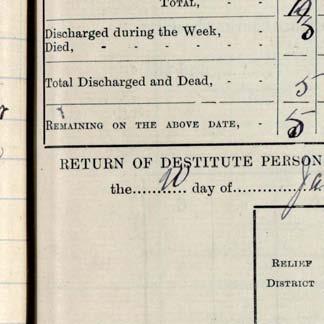 TOTAL, - - 10
Discharged during the Week, - - 5
Died, - - - - -
Total Discharged and Dead, - - 5
REMAINING ON THE ABOVE DATE, - 5
RETURN OF DESTITUTE PERSON
the 10 day of Ja
RELIEF
DISTRICT